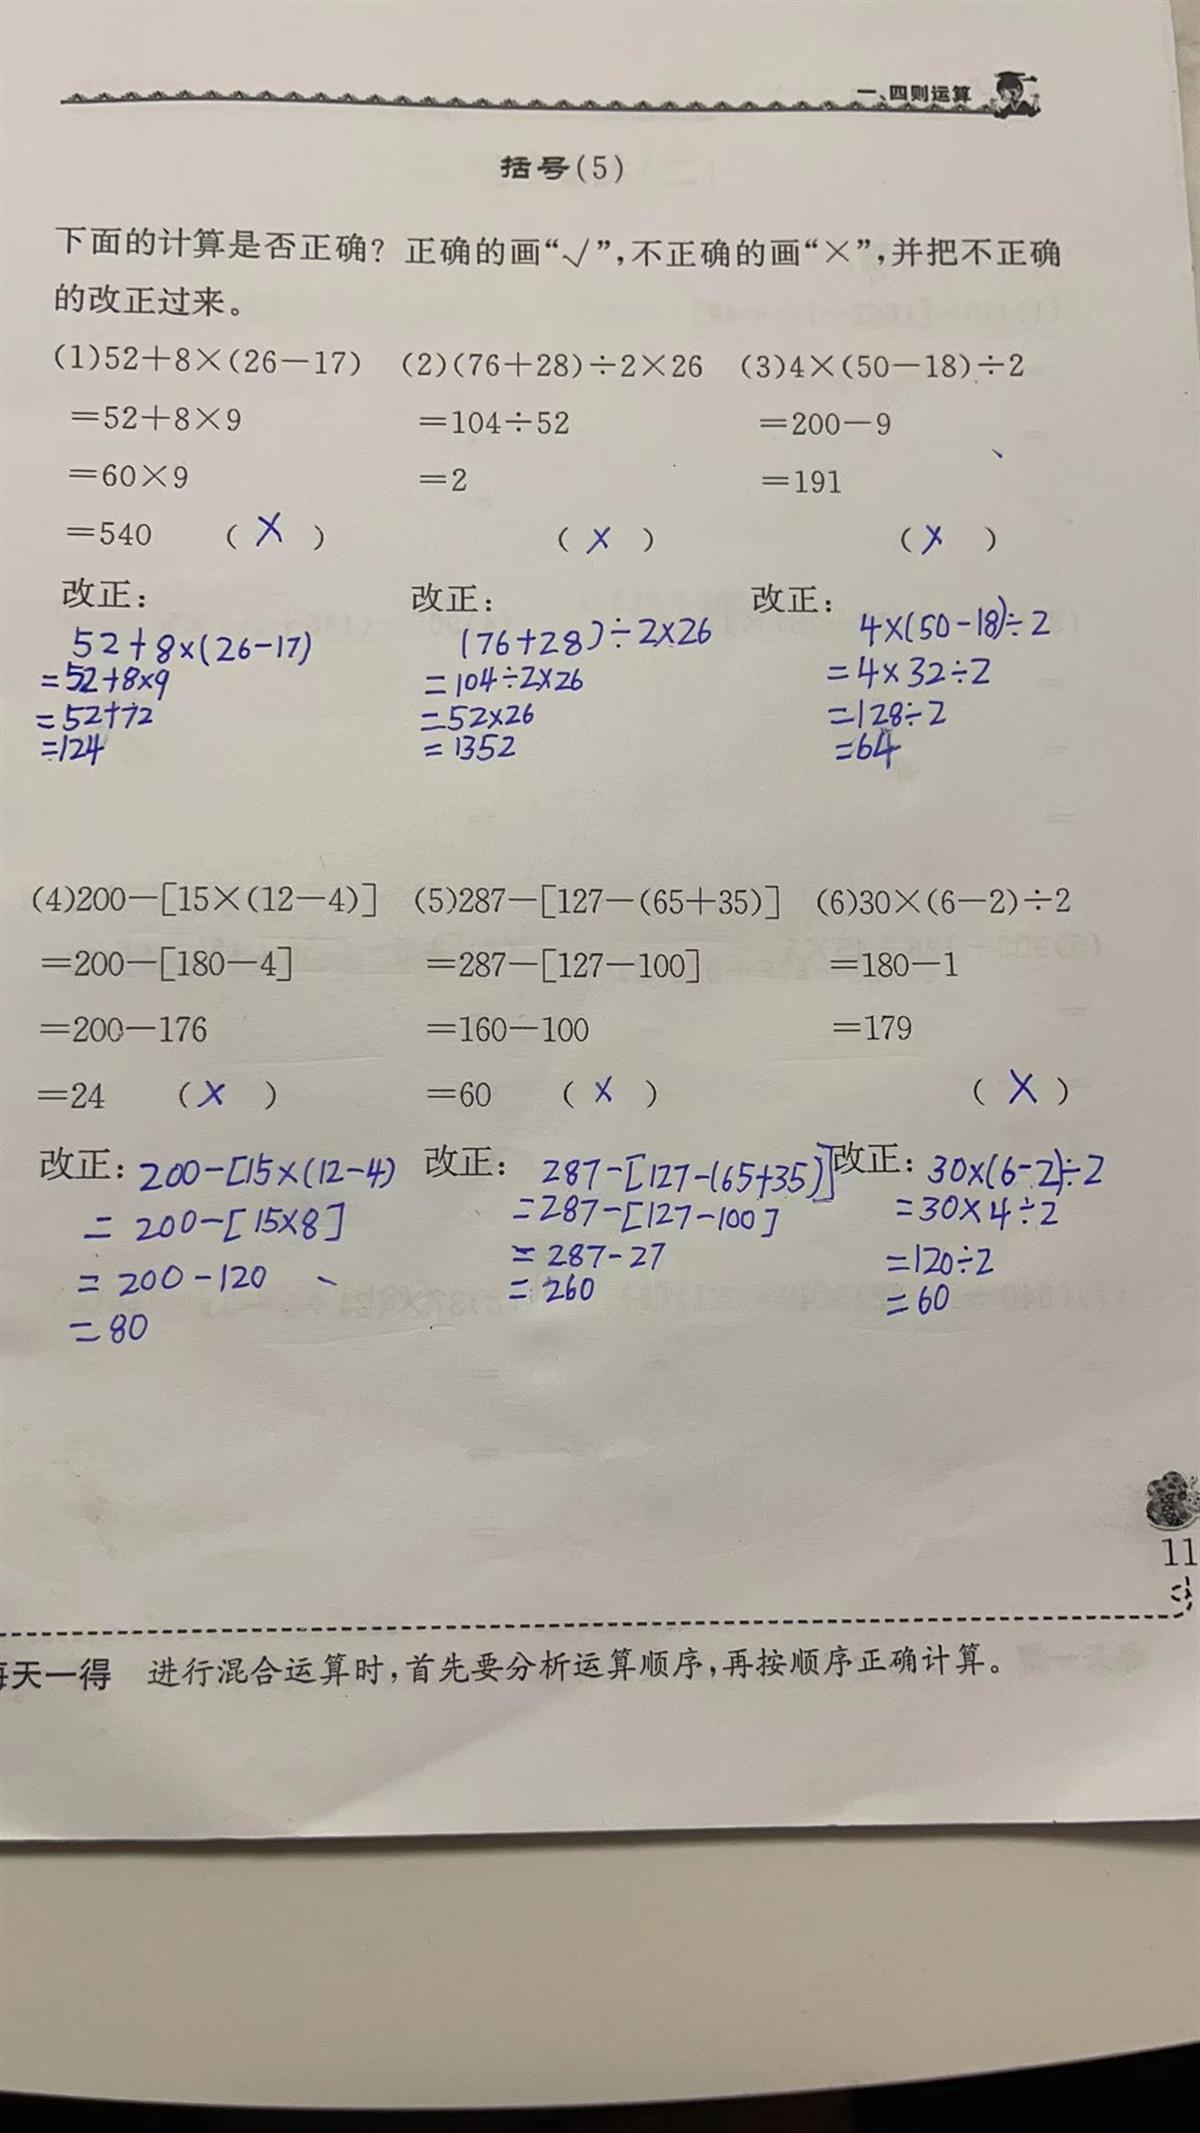 一、四则运算
括号(5)
下面的计算是否正确？正确的画“√”,不正确的画“×”,并把不正确
的改正过来。
(1)52+8×(26-17) (2)(76+28)÷2×26 (3)4×(50-18)÷2
=52+8×9 =104÷52 =200-9
=60×9 =2 =191
=540 ( X ) ( x ) ( x )
改正: 改正: 改正:
52+8×(26-17) (76+28)÷2×26 4×(50-18)÷2
=52+8×9 =104÷2×26 =4×32÷2
=52+72 =52×26 =128÷2
=124 =1352 =64
(4)200-[15×(12-4)] (5)287-[127-(65+35)] (6)30×(6-2)÷2
=200-[180-4] =287-[127-100] =180-1
=200-176 =160-100 =179
=24 ( x ) =60 ( x ) ( X )
改正: 200-[15×(12-4) 改正: 287-[127-(65+35)] 改正: 30×(6-2)÷2
=200-[15×8] =287-[127-100] =30×4÷2
=200-120 =287-27 =120÷2
=80 =260 =60
11
每天一得 进行混合运算时,首先要分析运算顺序,再按顺序正确计算。